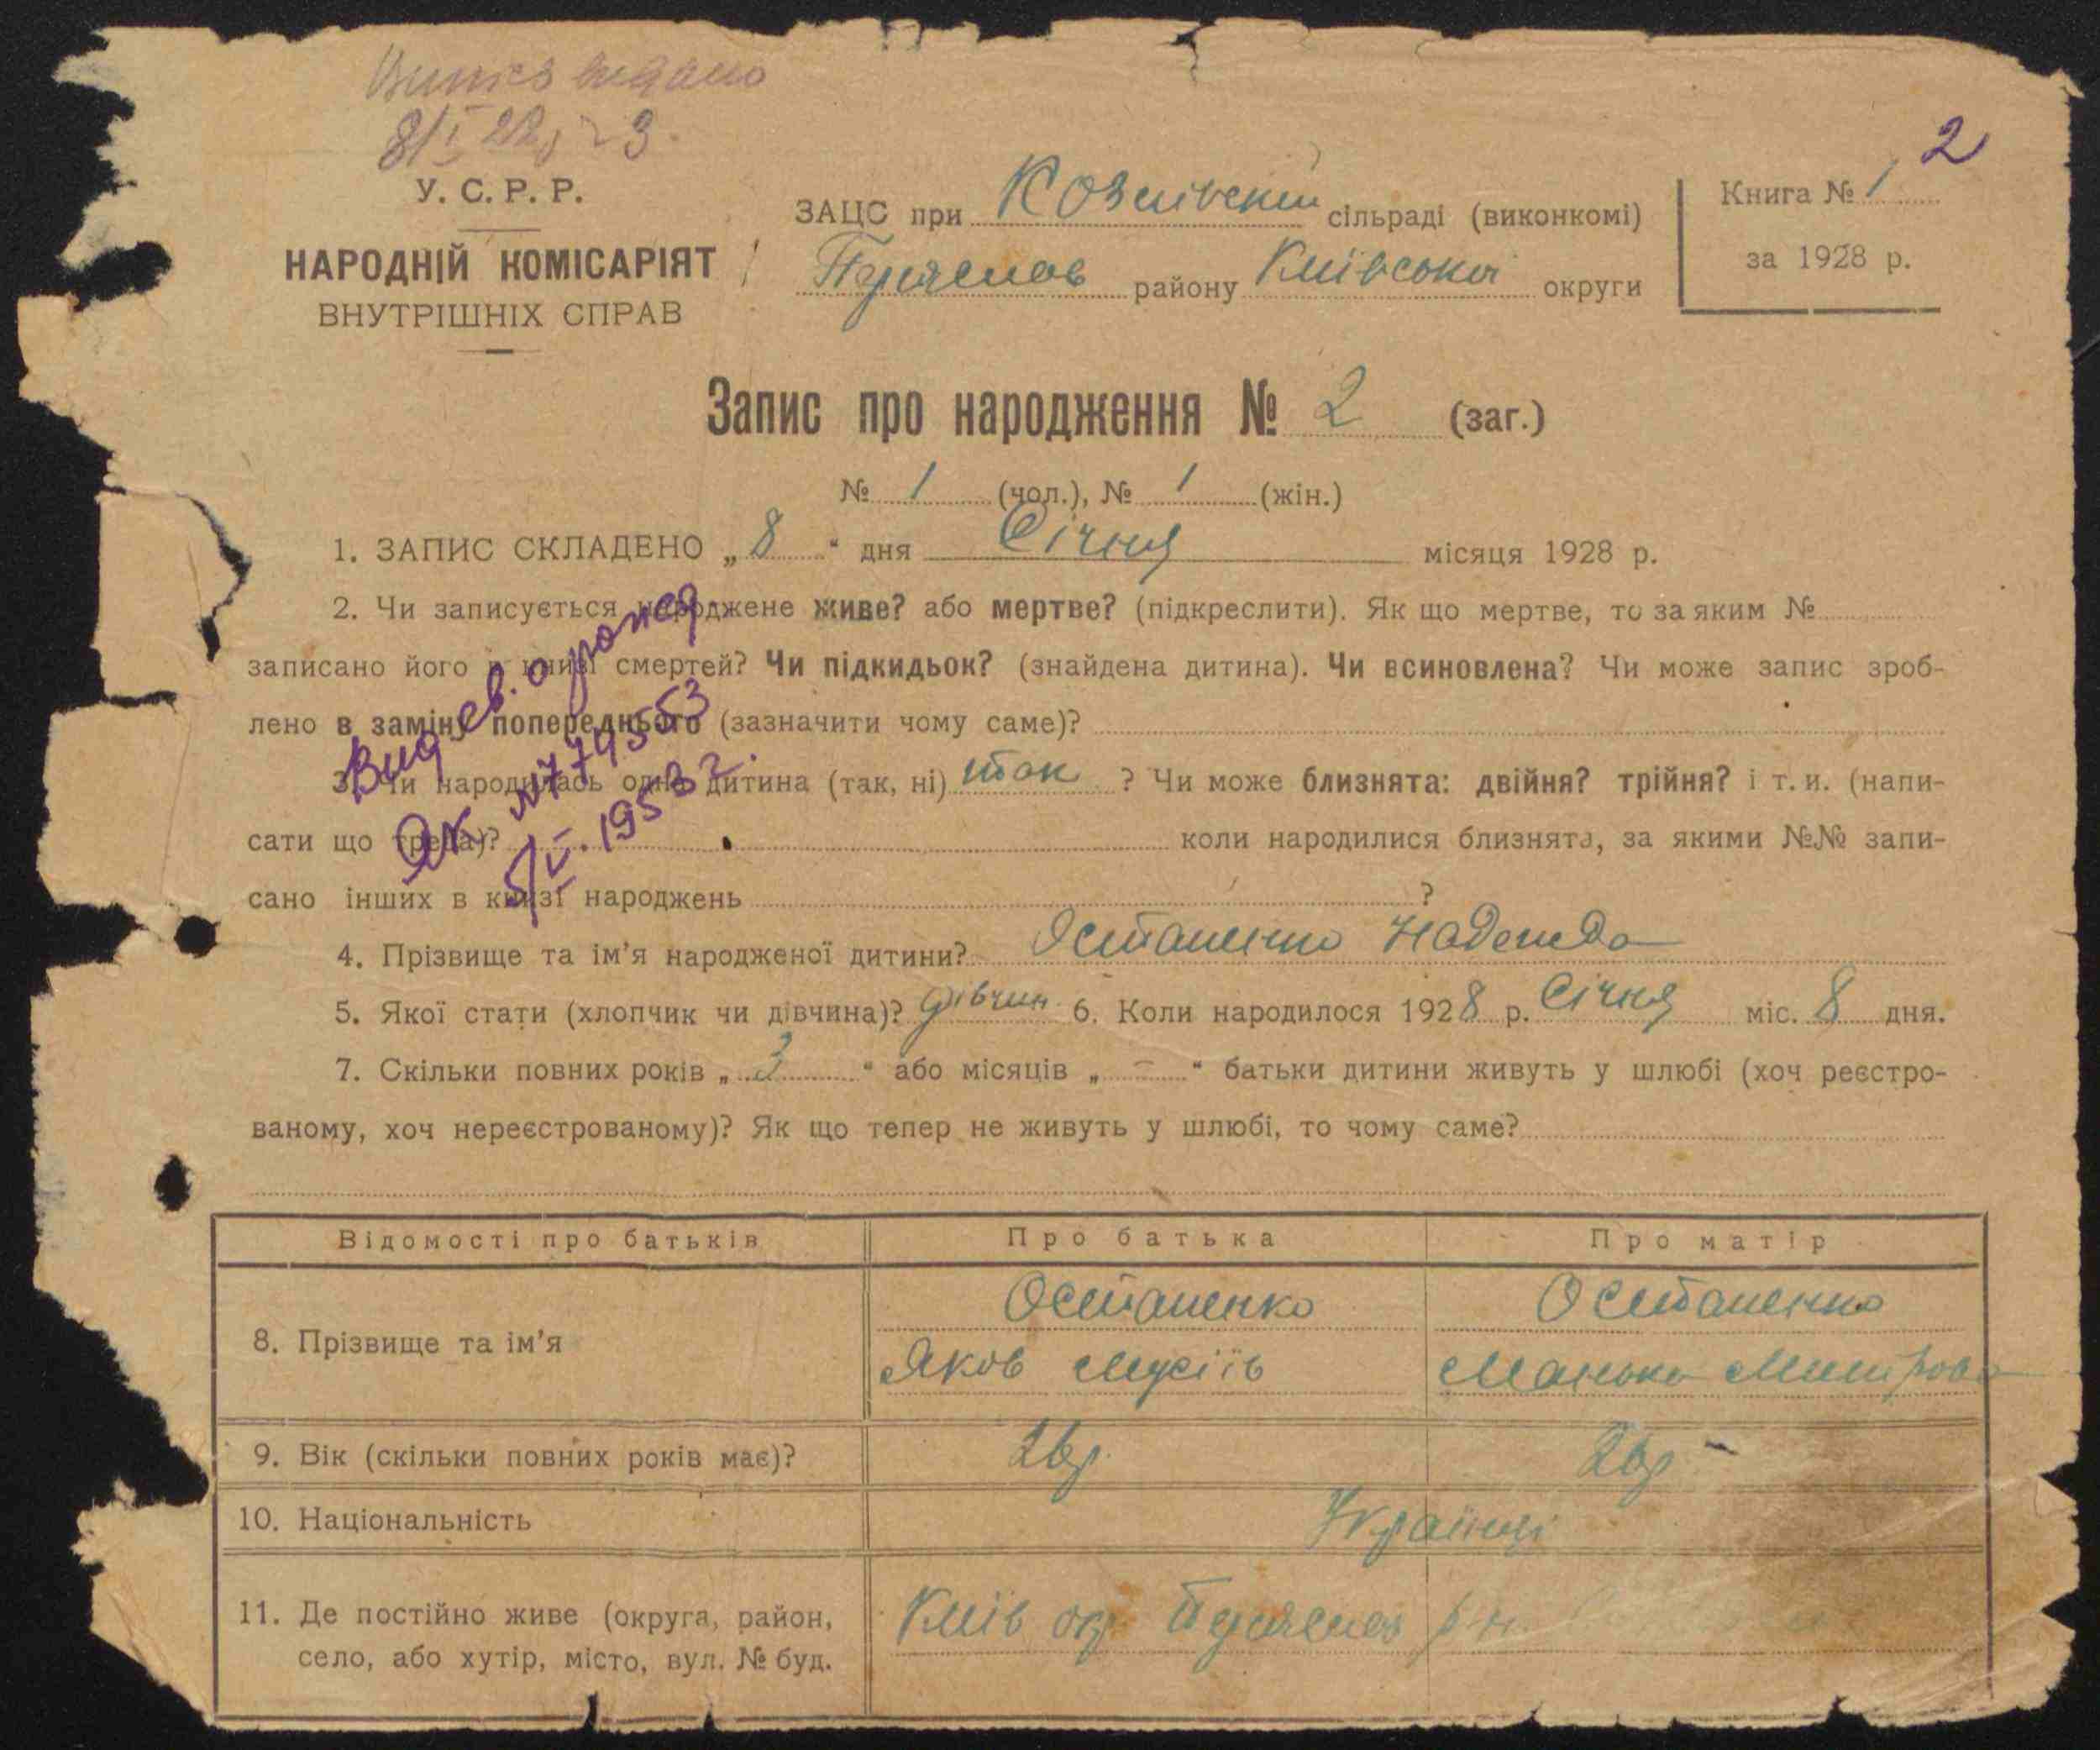 Випис видано
8/I 28, № 3.
2
У. С. Р. Р.
НАРОДНІЙ КОМІСАРІЯТ
ВНУТРІШНІХ СПРАВ
ЗАЦС при Козлівскій сільраді (виконкомі)
Переяслов району Київської округи
Книга № 1
за 1928 р.
Запис про народження № 2 (заг.)
№ 1 (чол.), № 1 (жін.)
1. ЗАПИС СКЛАДЕНО „8“ дня Січня місяця 1928 р.
2. Чи записується народжене живе? або мертве? (підкреслити). Як що мертве, то за яким №
записано його в книзі смертей? Чи підкидьок? (знайдена дитина). Чи всиновлена? Чи може запис зроб-
лено в заміну попереднього (зазначити чому саме)?
3. Чи народилась одна дитина (так, ні) так ? Чи може близнята: двійня? трійня? і т. и. (напи-
сати що треба)? коли народилися близнята, за якими №№ запи-
сано інших в книзі народжень ?
Выд. св. о рожд.
№ 774553
5/V. 1953 г.
4. Прізвище та ім'я народженої дитини? Остапенко Надежда
5. Якої стати (хлопчик чи дівчина)? дівчин 6. Коли народилося 1928 р. Січня міс. 8 дня.
7. Скільки повних років „3“ або місяців „-“ батьки дитини живуть у шлюбі (хоч реєстро-
ваному, хоч нереєстрованому)? Як що тепер не живуть у шлюбі, то чому саме?
Відомості про батьків Про батька Про матір
8. Прізвище та ім'я
Остапенко Остапенко
Яков Мусіїв Манька Митрова
9. Вік (скільки повних років має)? 26р. 26р -
10. Національність Українці
11. Де постійно живе (округа, район,
село, або хутір, місто, вул. № буд.
Київ окр. Переяслов р-н.